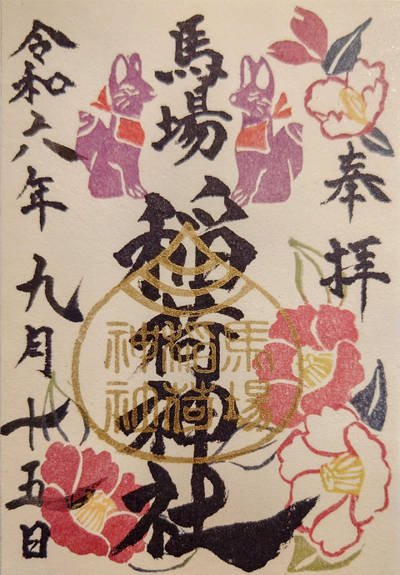 奉拝
馬場
稲荷神社
令和六年九月廿五日
馬場
稲荷
神社